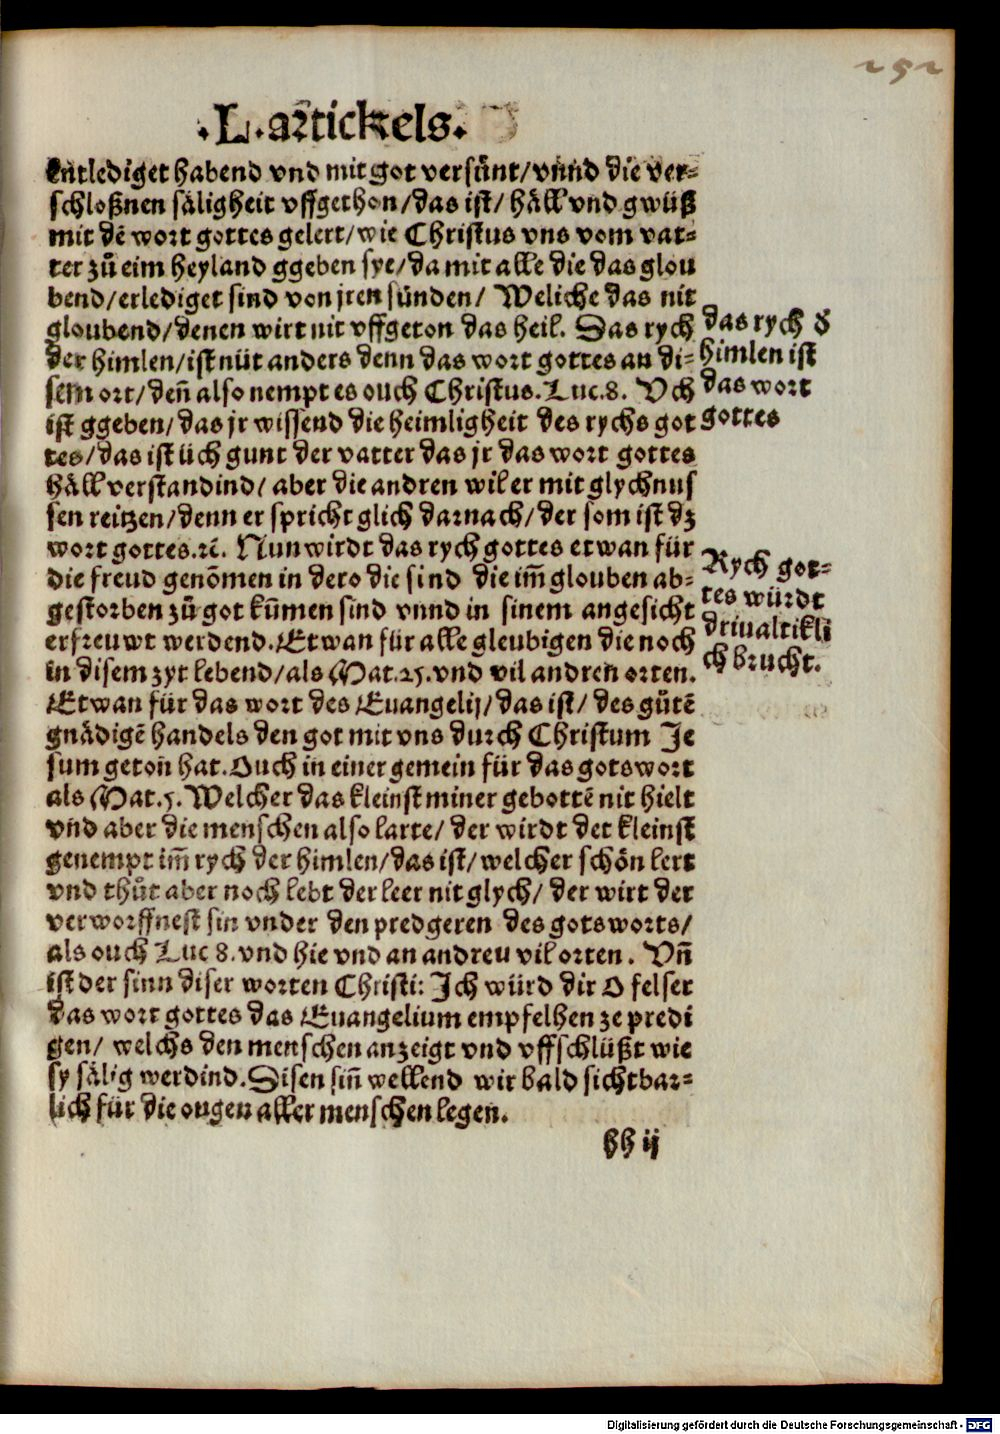 252
.L.artickels.
entlediget habend vnd mit got versünt/vnnd die ver-
schloßnen säligheit vffgethon/das ist/häll vnd gwüß
mit dē wort gottes gelert/wie Christus vns vom vat-
ter zů eim heyland ggeben sye/da mit alle die das glou
bend/erlediget sind von jren sünden/ Weliche das nit
gloubend/denen wirt nit vffgeton das heil. Das rych
der himlen/ist nüt anders denn das wort gottes an di-
sem ort/deñ also nempt es ouch Christus.Luc.8. Vch
ist ggeben/das jr wissend die heimligheit des rychs got
tes/das ist üch gunt der vatter das jr das wort gottes
häll verstandind/aber die andren wil er mit glychnus
sen reitzen/denn er spricht glich darnach/der som ist dz
wort gottes.rc̄. Nun wirdt das rych gottes etwan für
die freud genōmen in dero die sind die im̄ glouben ab-
gestorben zů got kum̄en sind vnnd in sinem angesicht
erfreuwt werdend.Etwan für alle gleubigen die noch
in disem zyt lebend/als Mat.25.vnd vil andren orten.
Etwan für das wort des Euangelij/das ist/des gůtē
gnädigē handels den got mit vns durch Christum Je
sum geton hat.Ouch in einer gemein für das gotswort
als Mat.5.Welcher das kleinst miner gebottē nit hielt
vnd aber die menschen also larte/der wirdt det kleinst
genempt im̄ rych der himlen/das ist/welcher schön lert
vnd thůt aber noch lebt der leer nit glych/der wirt der
verworffnest sin vnder den predgeren des gotsworts/
als ouch Luc 8.vnd hie vnd an andreu vil orten. Vñ
ist der sinn diser worten Christi: Ich würd dir O felser
das wort gottes das Euangelium empfelhen ze predi
gen/ welchs den menschen anzeigt vnd vffschlüßt wie
sy sälig werdind.Disen siñ wellend wir bald sichtbar-
lich für die ougen aller menschen legen.
hh ij
das rych d̄
himlen ist
das wort
gottes
Rych got-
tes würdt
driualtikli
ch brucht.
Digitalisierung gefördert durch die Deutsche Forschungsgemeinschaft - DFG